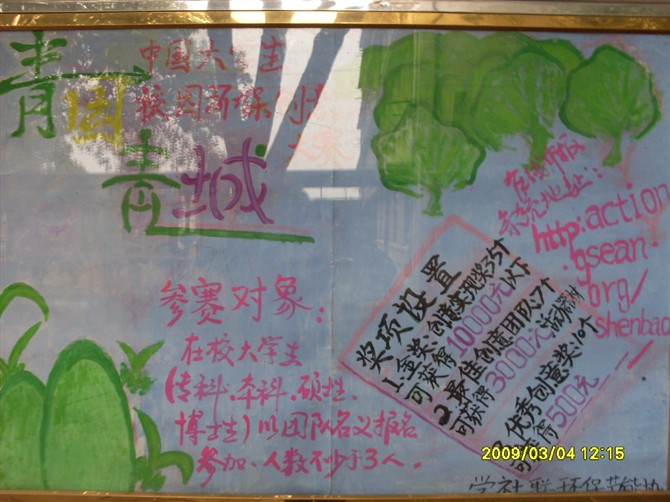 青园
青城
中国大学生
校园环保创意
大赛
在线申报
系统地址：
http:action
.gsean.
org/
shenbao
参赛对象：
在校大学生
(专科、本科、硕士、
博士生)以团队名义报名
参加、人数不少于3人。
奖项设置
1.金奖:创意实现奖35个
可获得10000元以下
2.最佳创意团队:7个
可获得3000元
3.优秀创意奖:10个
可获得500元
学社联环保节能协
2009/03/04 12:15